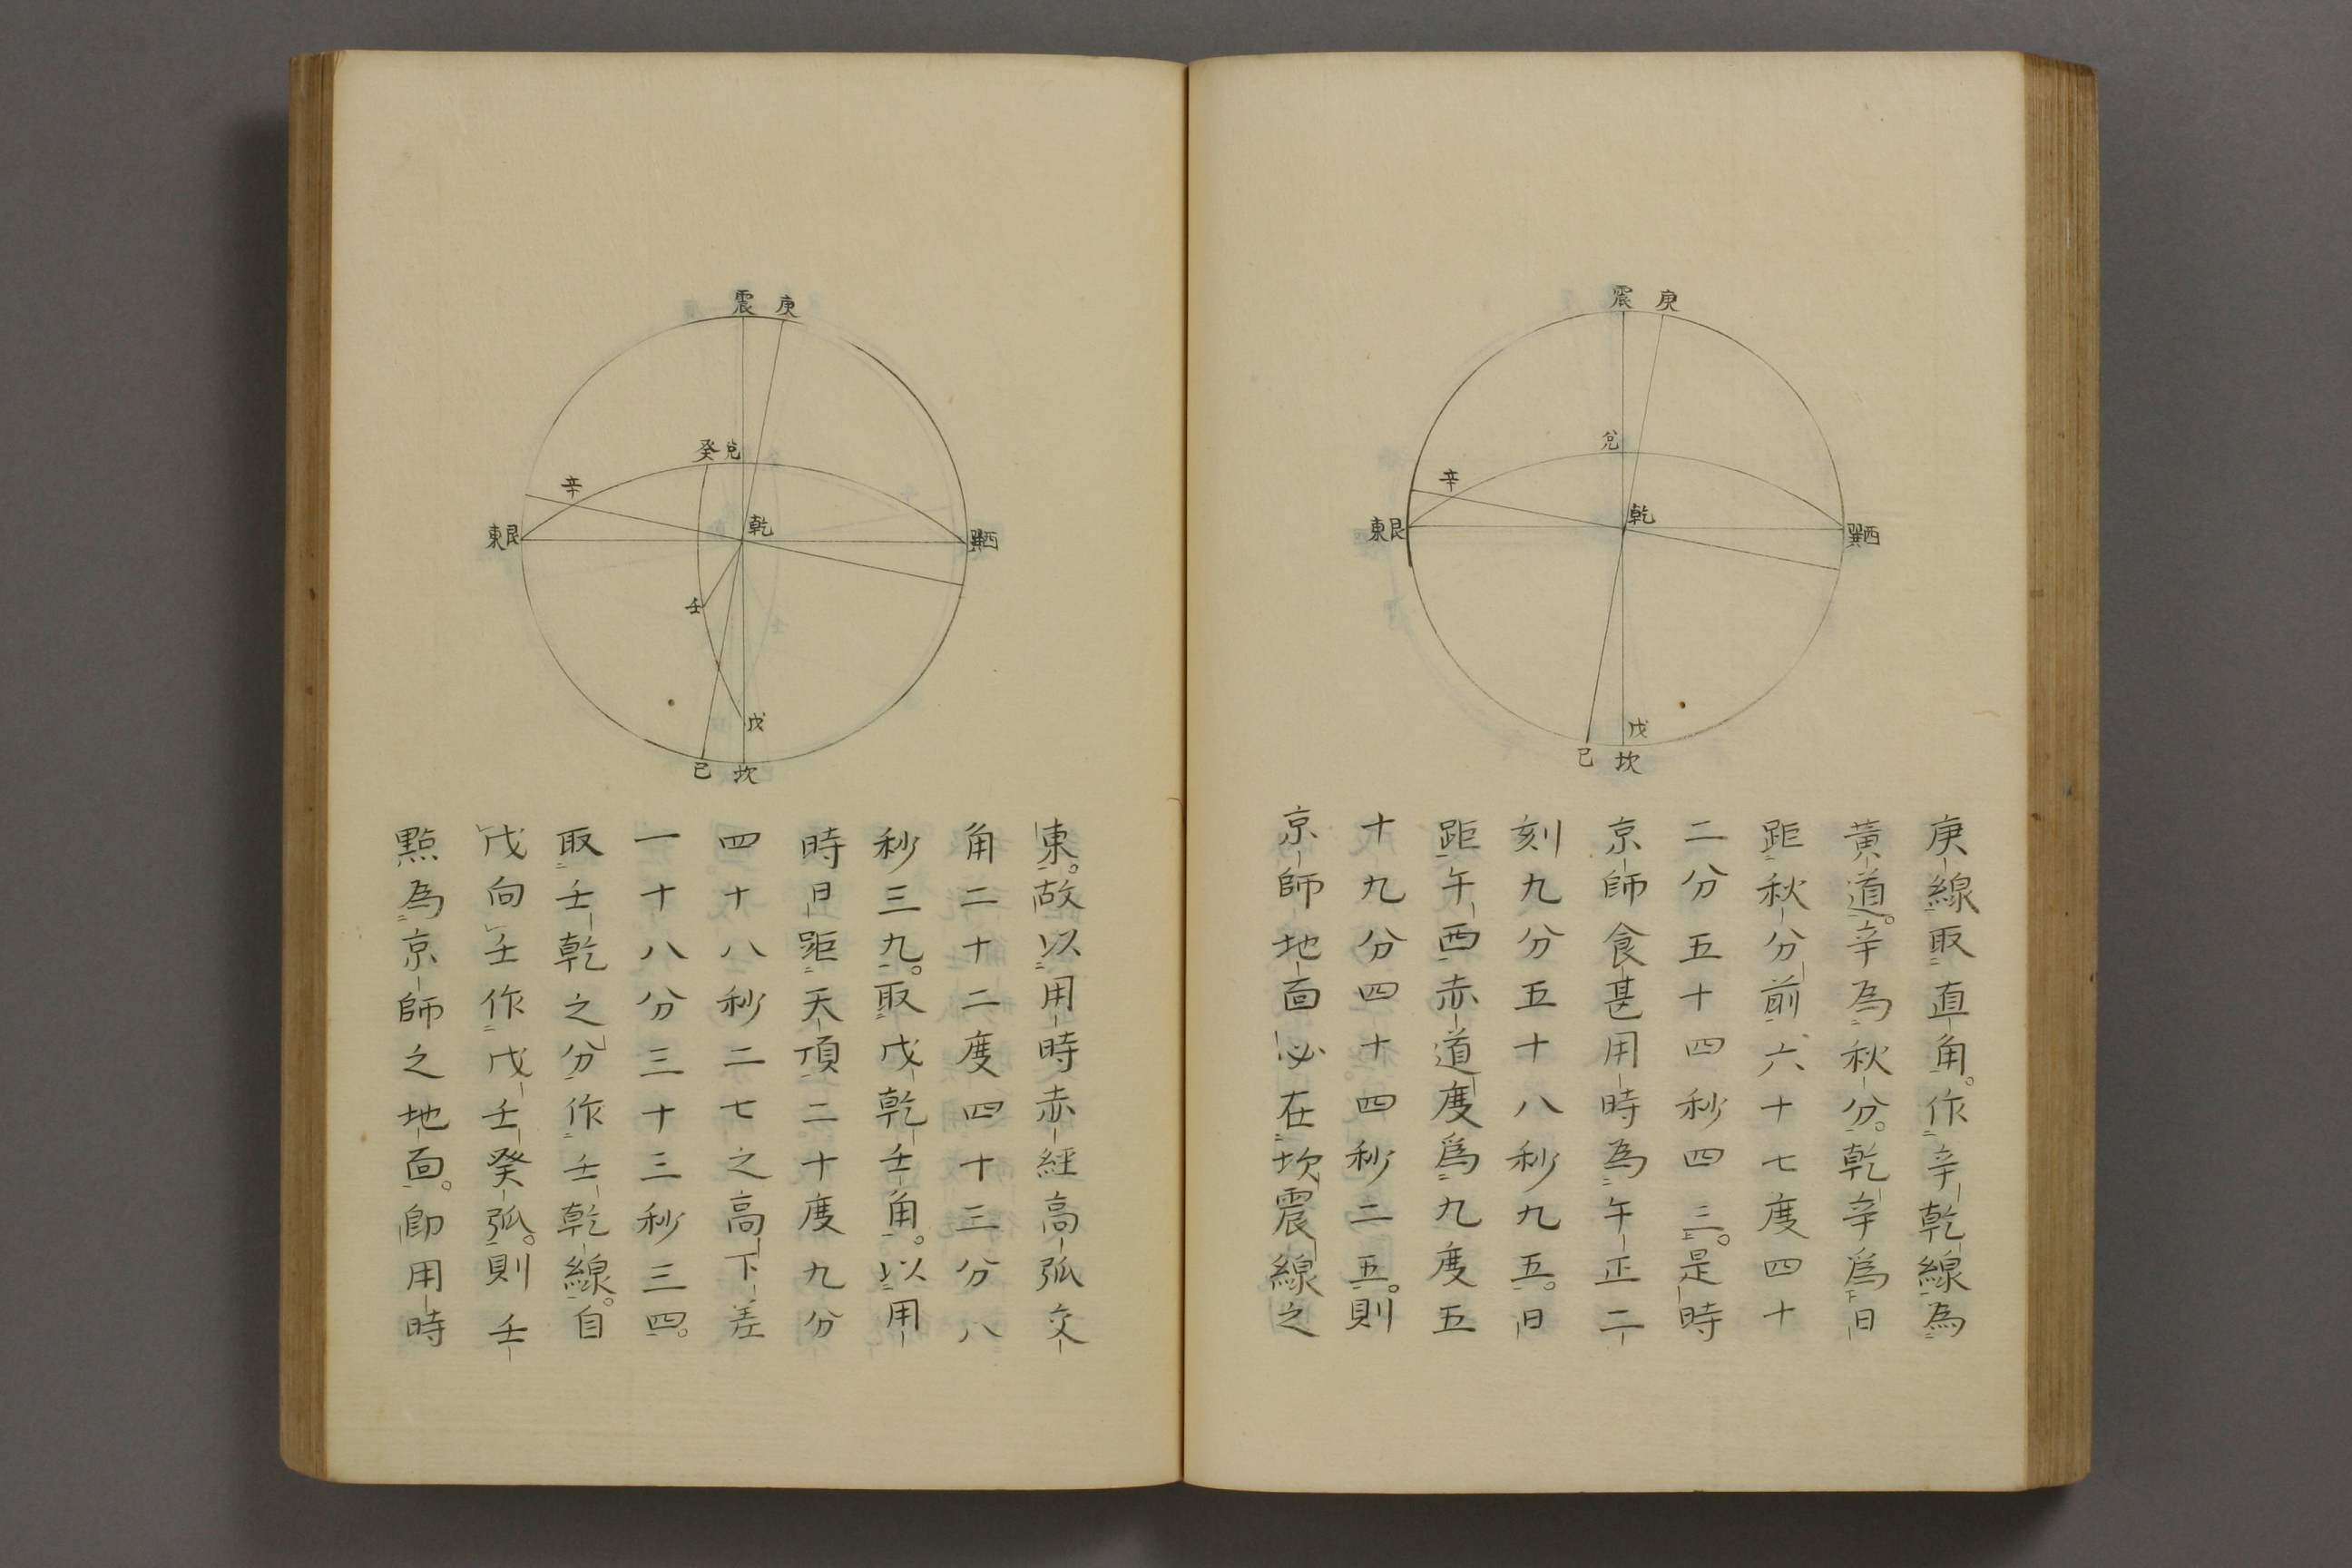 震 庚
兌
辛
乾
東艮
巽西
戊
己 坎
庚線取直角。作辛乾線為
黃道。辛為秋分。乾辛爲日
距秋分前六十七度四十
二分五十四秒四三。是時
京師食甚用時為午正二
刻九分五十八秒九五。日
距午西赤道度爲九度五
十九分四十四秒二五。則
京師地面必在坎震線之
震 庚
癸 兌
辛
乾
東艮
巽西
壬
戊
己 坎
東。故以用時赤經高弧交
角二十二度四十三分八
秒三九。取戊乾壬角。以用
時日距天頂二十度九分
四十八秒二七之高下差
一十八分三十三秒三四。
取壬乾之分作壬乾線。自
戊向壬作戊壬癸弧。則壬
點為京師之地面。卽用時